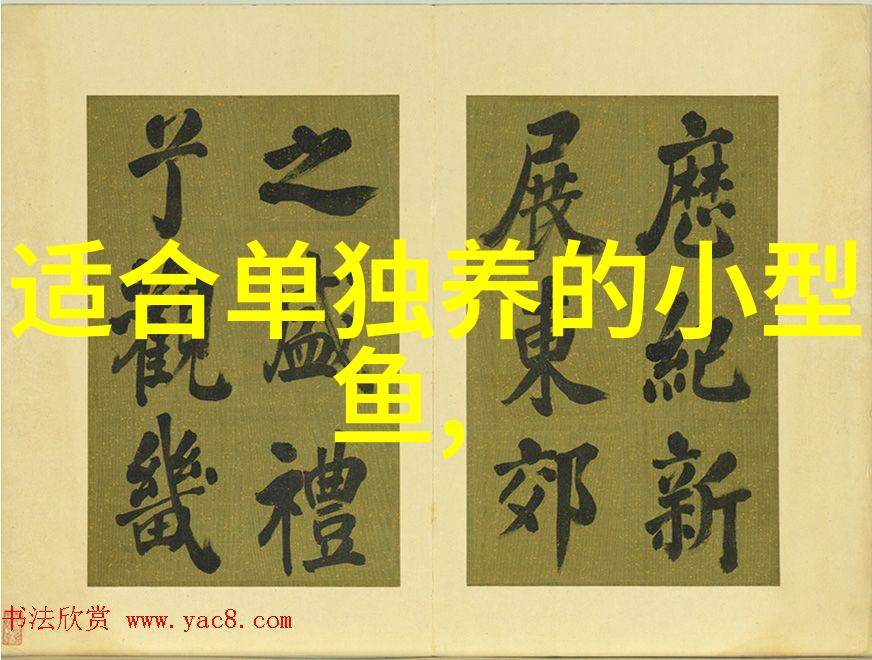 适合单独养的小型
鱼,
歷紀新
展東郊
之盛禮
觀畿
书法欣赏 www.yac8.com